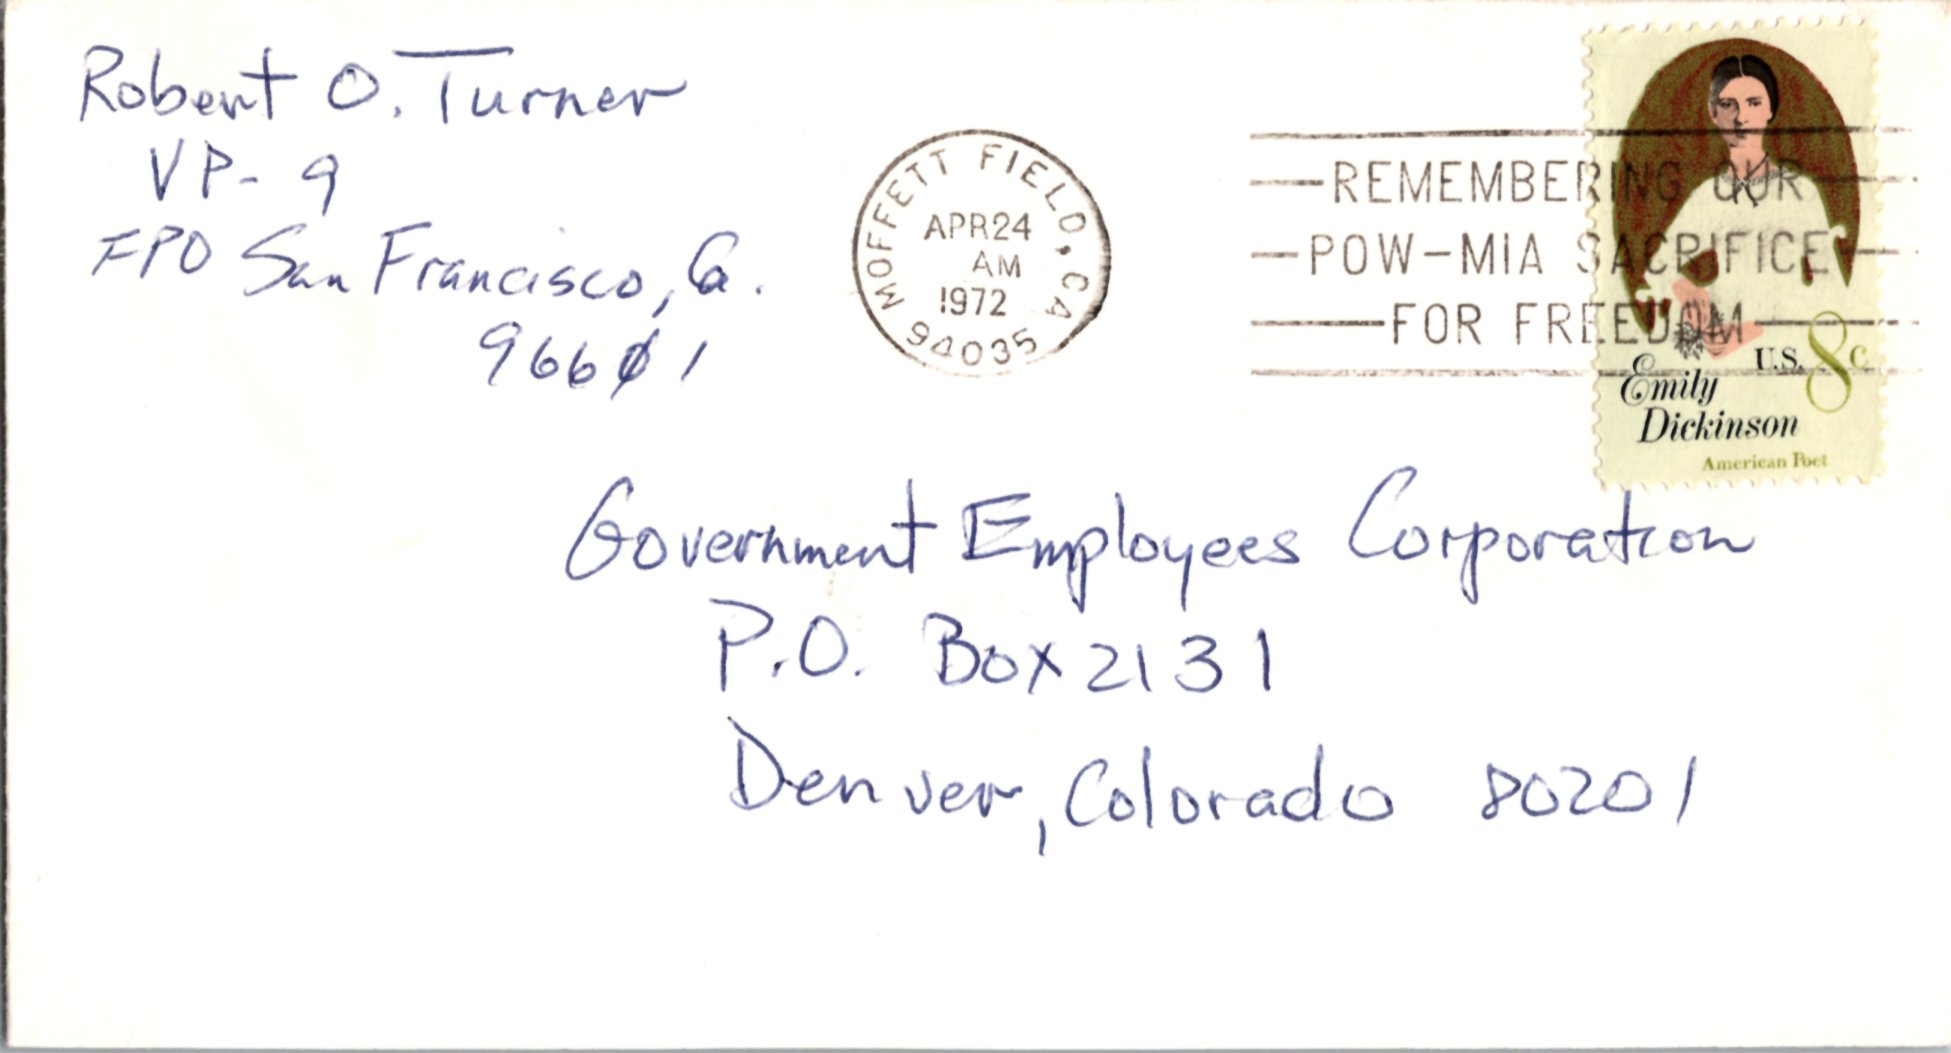 Robert O. Turner
VP-9
FPO San Francisco, Ca.
96601
MOFFETT FIELD, CA
APR 24
AM
1972
94035
REMEMBERING OUR
POW-MIA SACRIFICE
FOR FREEDOM
U.S. 8c
Emily
Dickinson
American Poet
Government Employees Corporation
P.O. Box 2131
Denver, Colorado 80201